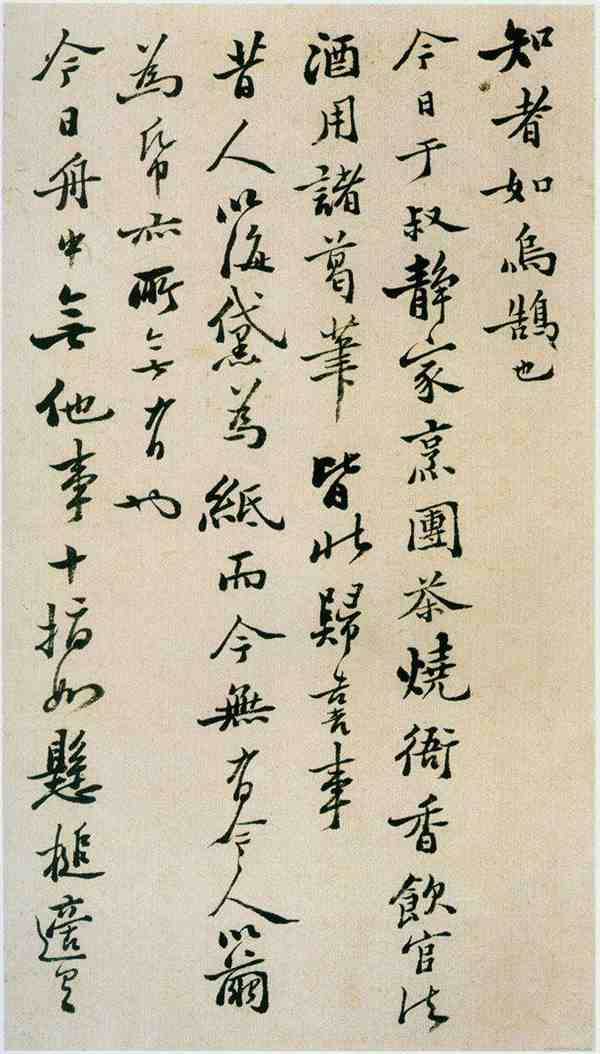 知者如烏鵲也
今日于叔静家烹團茶燒衙香飲官法
酒用諸葛筆皆北歸喜事
昔人以海黛為紙而今無有今人以繭
為帋亦所無有也
今日舟中無他事十指如懸槌適